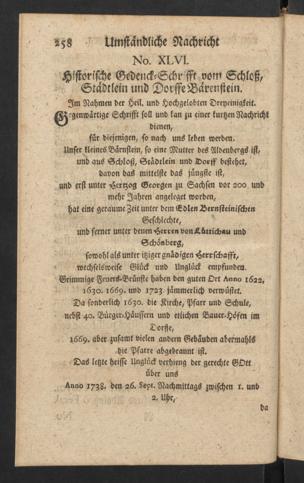 258 Umständliche Nachricht
No. XLVI.
Historische Gedenck-Schrifft vom Schloß,
Städtlein und Dorffe Bärenstein.
Im Nahmen der Heil. und Hochgelobten Dreyeinigkeit.
Gegenwärtige Schrifft soll und kan zu einer kurtzen Nachricht
dienen,
für diejenigen, so nach uns leben werden.
Unser kleines Bärnstein, so eine Mutter des Aldenbergs ist,
und aus Schloß, Städtlein und Dorff bestehet,
davon das mittelste das jüngste ist,
und erst unter Hertzog Georgen zu Sachsen vor 200. und
mehr Jahren angeleget worden,
hat eine geraume Zeit unter dem Edlen Bernsteinischen
Geschlechte,
und ferner unter denen Herren von Lüttichau und
Schönberg,
sowohl als unter itziger gnädigen Herrschafft,
wechselsweise Glück und Unglück empfunden.
Grimmige Feuers-Brünste haben den guten Ort Anno 1622,
1630. 1669. und 1723. jämmerlich verwüstet.
Da sonderlich 1630. die Kirche, Pfarr und Schule,
nebst 40. Bürger-Häusern und etlichen Bauer-Höfen im
Dorffe,
1669. aber zusamt vielen andern Gebäuden abermahls
die Pfarre abgebrannt ist.
Das letzte heisse Unglück verhieng der gerechte GOtt
über uns
Anno 1738. den 26. Sept. Nachmittags zwischen 1. und
2. Uhr,
da